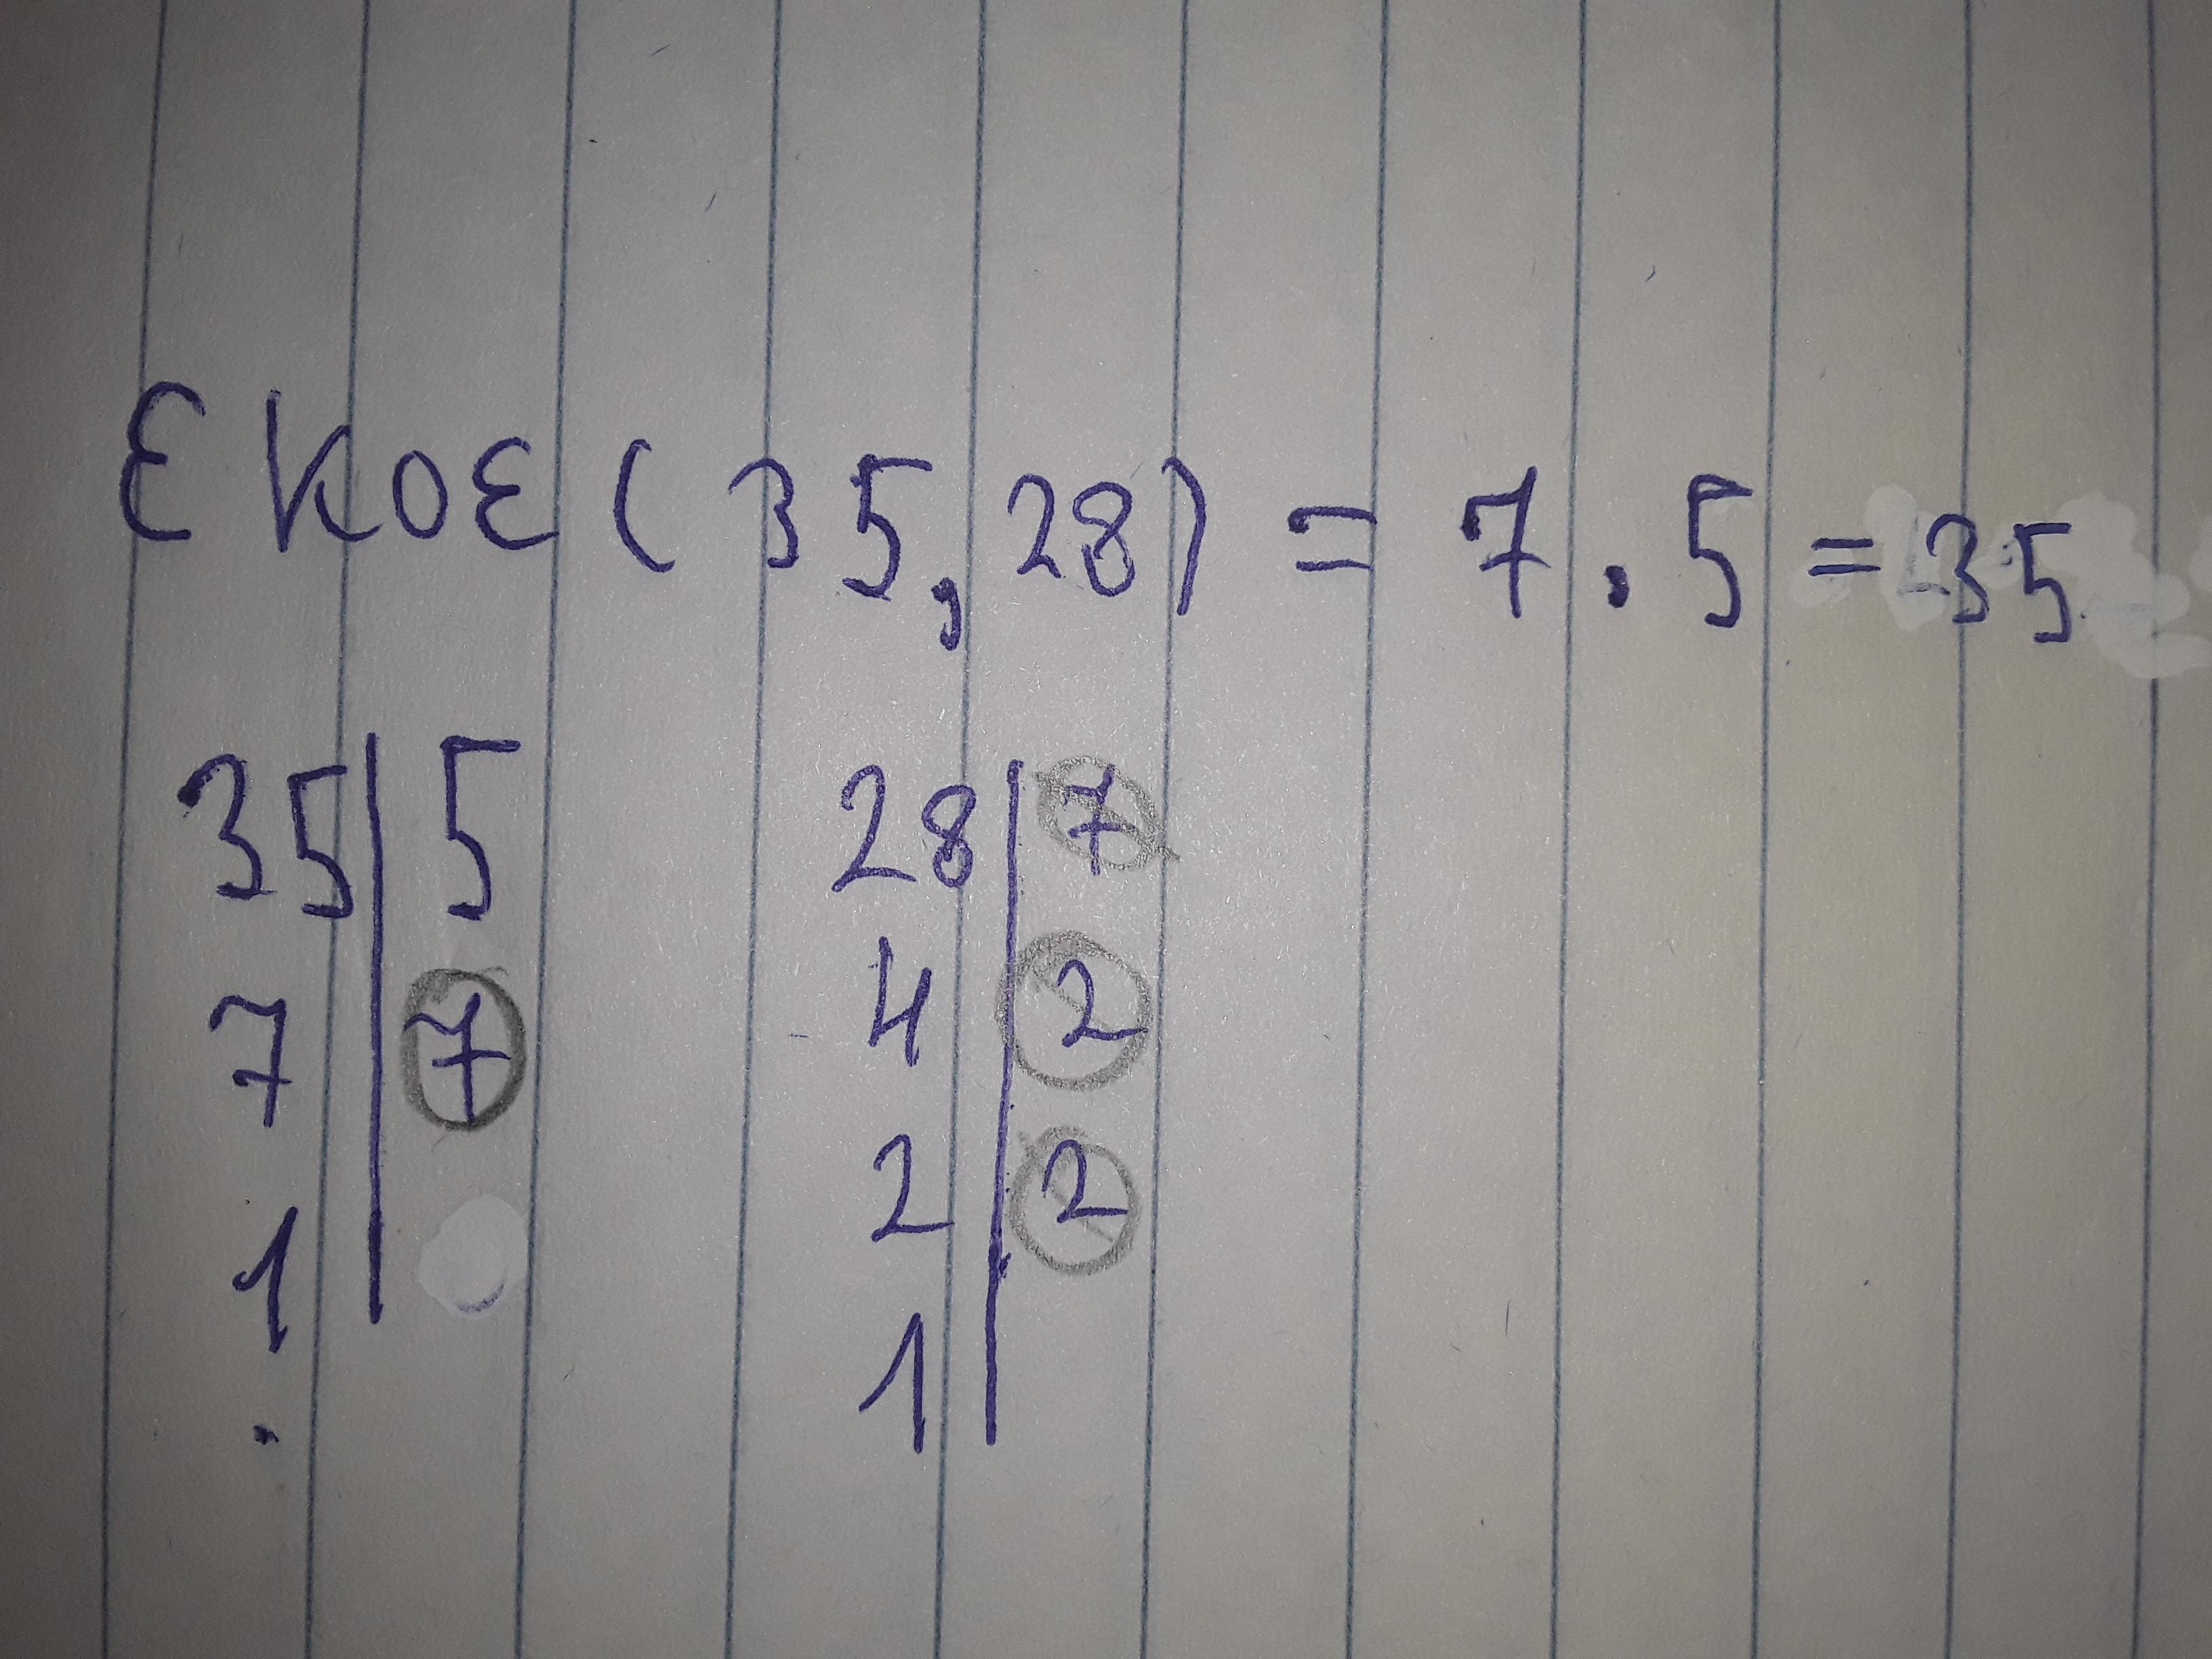 εκοε (35, 28) = 7 . 5 = 35
35 | 5 28 | 7
7 | 7 4 | 2
1 | 2 | 2
1 |